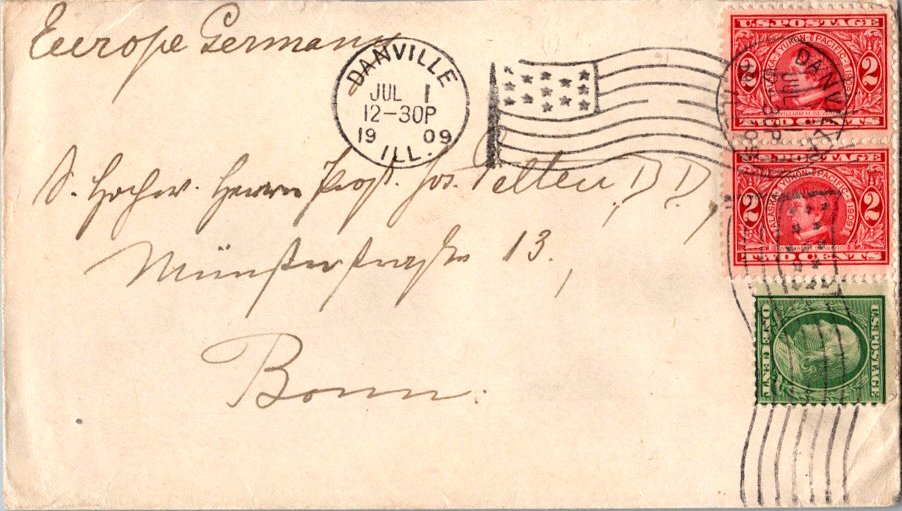 Europe Germany
DANVILLE
JUL 1
12-30P
1909
ILL.
S. Hochw. Herrn Prof. Jos. Pelten, D D,
Münsterstraße 13,
Bonn.
U.S. POSTAGE
2 2
ALASKA YUKON PACIFIC 1909
TWO CENTS
DANVILLE
U.S. POSTAGE
2 2
ALASKA YUKON PACIFIC 1909
TWO CENTS
U.S. POSTAGE
ONE CENT